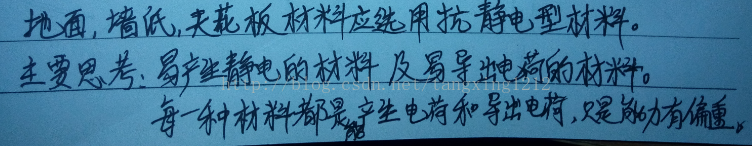 地面，墙纸，天花板材料应选用抗静电型材料。
主要思考：易产生静电的材料及易导出电荷的材料。
http://blog.csdn.net/tangxing1212
每一种材料都是能产生电荷和导出电荷，只是能力有偏重。